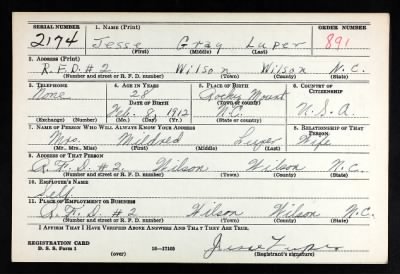 SERIAL NUMBER 1. NAME (Print) ORDER NUMBER
2174 Jesse Gray Luper 891
(First) (Middle) (Last)
2. ADDRESS (Print)
R.F.D. # 2 Wilson Wilson N.C.
(Number and street or R. F. D. number) (Town) (County) (State)
3. TELEPHONE 4. AGE IN YEARS 5. PLACE OF BIRTH 6. COUNTRY OF CITIZENSHIP
None 28 Rocky Mount
DATE OF BIRTH (Town or county)
Feb. 8, 1912 N.C. U.S.A.
(Exchange) (Number) (Mo.) (Day) (Yr.) (State or country)
7. NAME OF PERSON WHO WILL ALWAYS KNOW YOUR ADDRESS 8. RELATIONSHIP OF THAT PERSON
Mrs. Mildred Luper Wife
(Mr., Mrs., Miss) (First) (Middle) (Last)
9. ADDRESS OF THAT PERSON
R.F.D. # 2. Wilson Wilson N.C.
(Number and street or R. F. D. number) (Town) (County) (State)
10. EMPLOYER'S NAME
Self
11. PLACE OF EMPLOYMENT OR BUSINESS
R.F.D. # 2 Wilson Wilson N.C.
(Number and street or R. F. D. number) (Town) (County) (State)
I AFFIRM THAT I HAVE VERIFIED ABOVE ANSWERS AND THAT THEY ARE TRUE.
REGISTRATION CARD
D. S. S. Form 1 16—17105 Jesse Luper
(over) (Registrant's signature)